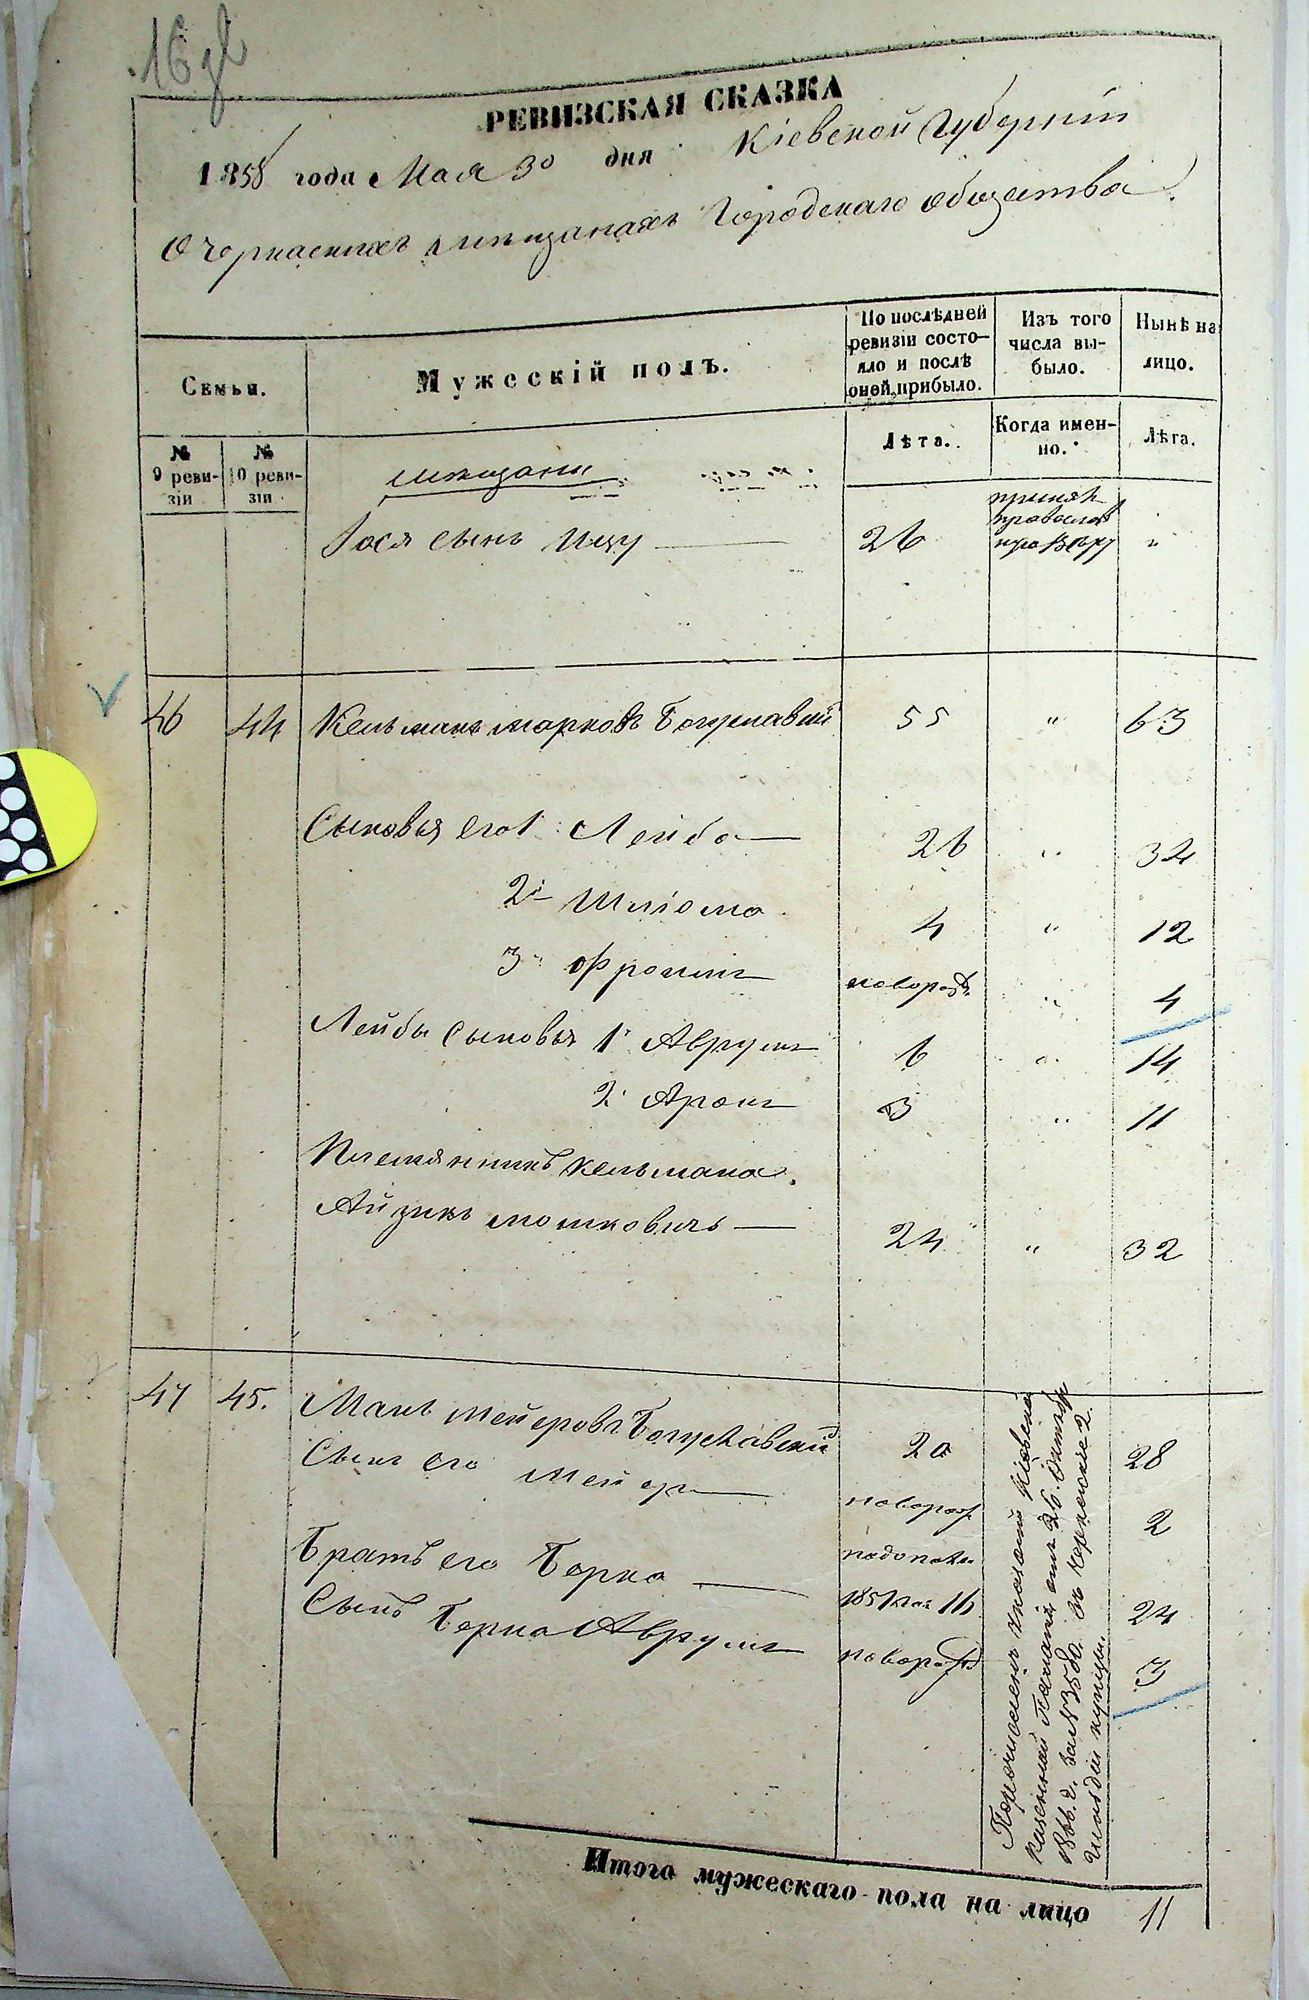 РЕВИЗСКАЯ СКАЗКА
1858 года Мая 30 дня Кіевской Губерніи
О Черкаскихъ мѣщанахъ Городскаго общества
Семьи.
Мужескій полъ.
По послѣдней ревизіи состо-
яло и послѣ оной прибыло.
Изъ того числа вы-
было.
Нынѣ на лицо.
№ 9 реви-
зіи
№ 10 реви-
зіи
мѣщане
Лѣта.
Когда имен-
но.
Лѣта.
Іося сынъ Ицу 26 принялъ православ
ную вѣру "
46 44 Кельманъ Марковъ Богуславскій 55 " 63
Сыновья его 1 Лейба 26 " 34
2й Шліома 4 " 12
3й Фроимъ новорожд. " 4
Лейбы сыновья 1й Аврумъ 6 " 14
2й Аронъ 3 " 11
Племянникъ Кельмана
Айзикъ Мошковичъ 24 " 32
47 45. Манъ Мейеровъ Богуславскій 20 28
Сынъ его Мейеръ новорож. 2
Братъ его Берко 1851 16 24
Сынъ Берка Аврумъ новорожд 3
Перечисленъ указомъ Кіевской
Казенной Палаты отъ 26. Октябр
186 г. за № 3580. въ Черкаскіе 2
гильдіи купцы.
Итого мужескаго пола на лицо 11